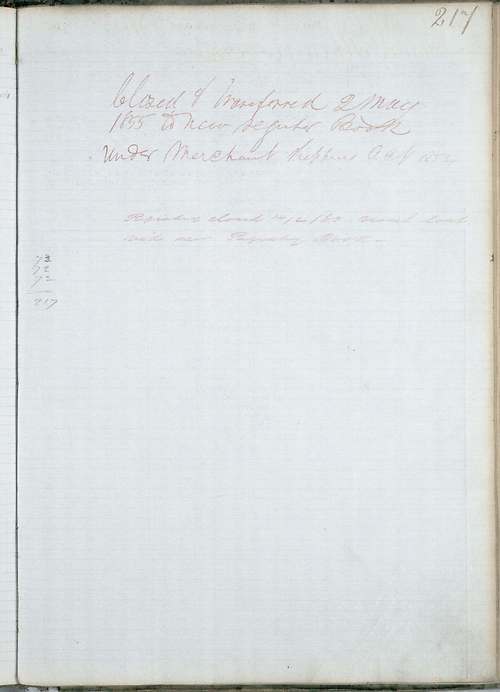 217
Closed & Transferred 2 May
1855 to new register Book
under Merchant Shippins Act 1854
closed
new Registry Book
73
72
72
217